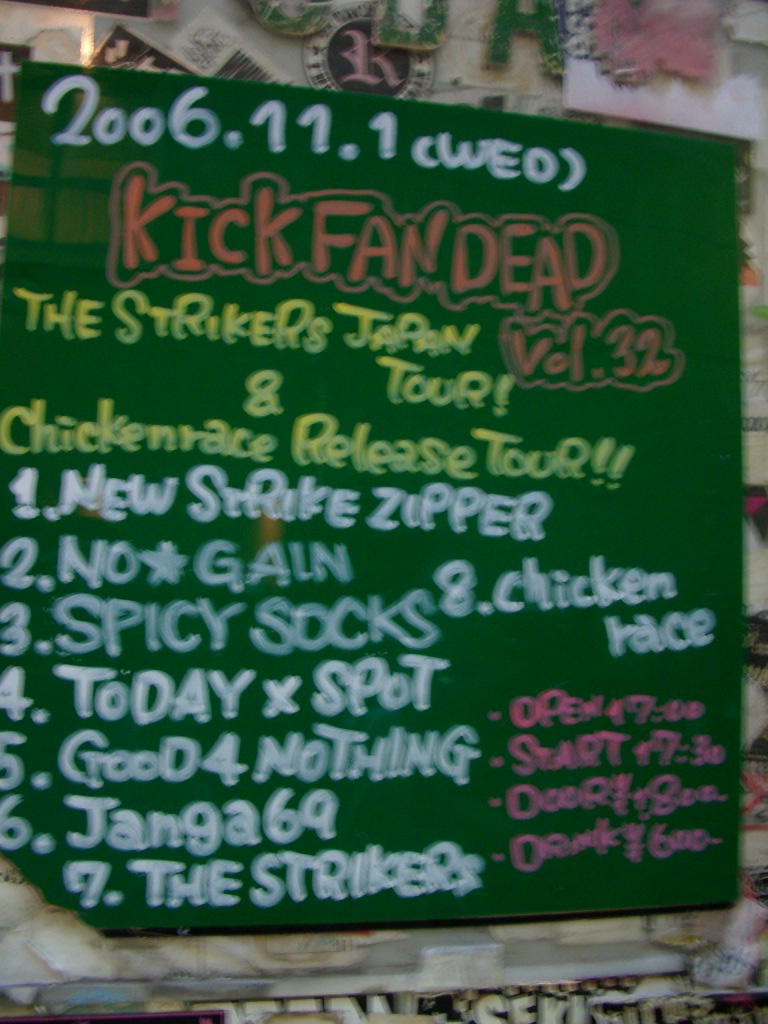 R
2006.11.1 (WED)
KICK FAN DEAD
Vol.32
THE STRIKERS JAPAN
TOUR!
&
Chickenrace Release TOUR!!
1. NEW STRIKE ZIPPER
2. NO★GAIN
3. SPICY SOCKS
4. TODAY x SPOT
5. GOOD4NOTHING
6. Janga69
7. THE STRIKERS
8. chicken
race
- OPEN 17:00
- START 17:30
- DOOR ¥1800-
- DRINK ¥600-